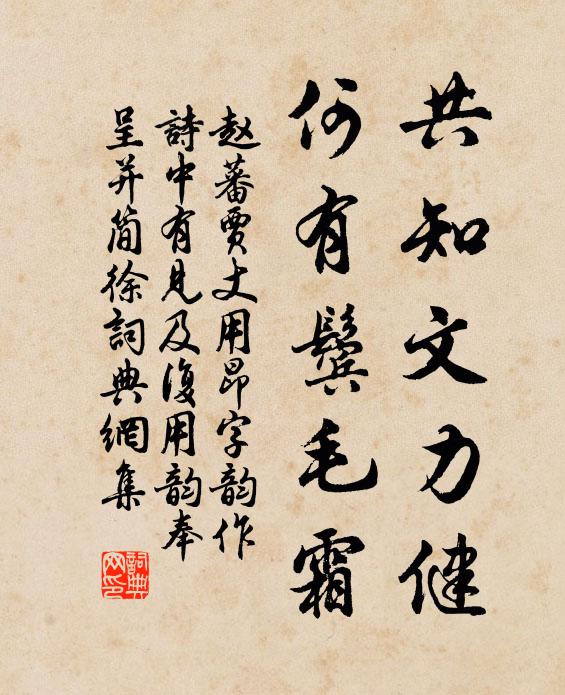 共知文力健
何有鬓毛霜
赵蕃贾丈用昂字韵作
詩中有見及復用韵奉
呈并简徐詞典網集
詞典
网印